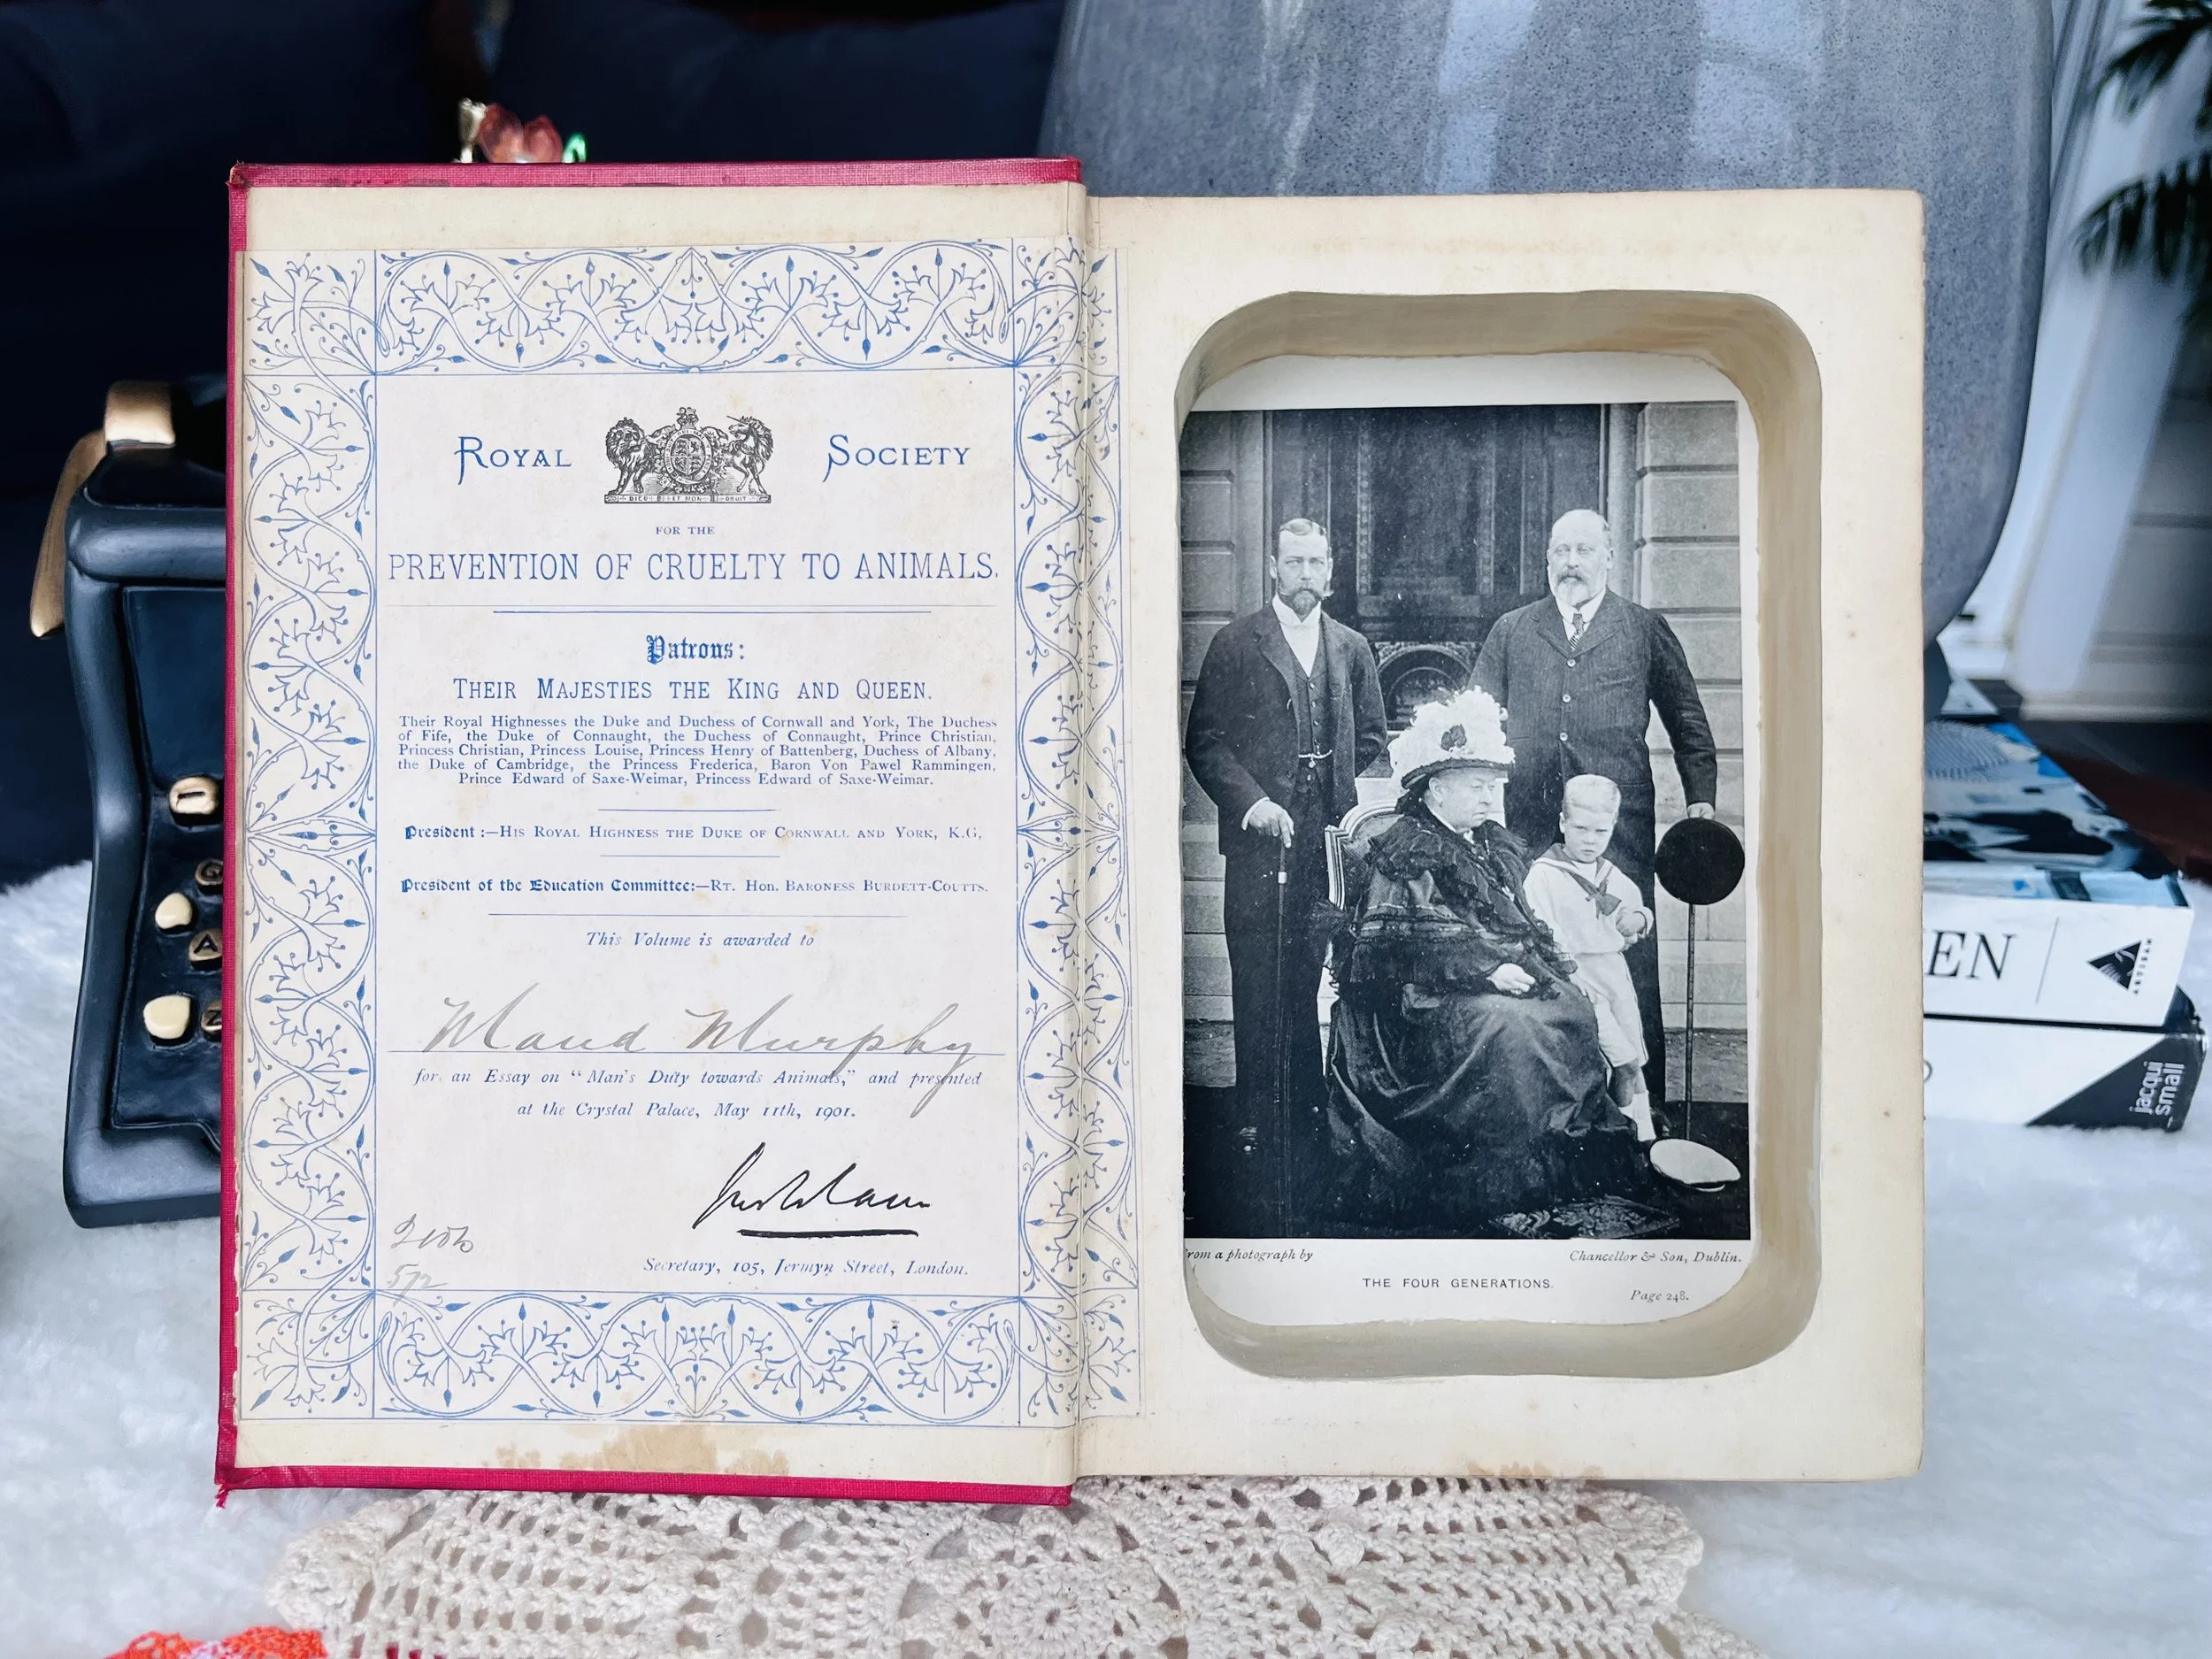 ROYAL SOCIETY
DIEU ET MON DROIT
FOR THE
PREVENTION OF CRUELTY TO ANIMALS.
Patrons:
THEIR MAJESTIES THE KING AND QUEEN.
Their Royal Highnesses the Duke and Duchess of Cornwall and York, The Duchess
of Fife, the Duke of Connaught, the Duchess of Connaught, Prince Christian,
Princess Christian, Princess Louise, Princess Henry of Battenberg, Duchess of Albany,
the Duke of Cambridge, the Princess Frederica, Baron Von Pawel Rammingen,
Prince Edward of Saxe-Weimar, Princess Edward of Saxe-Weimar.
President :—HIS ROYAL HIGHNESS THE DUKE OF CORNWALL AND YORK, K.G,
President of the Education Committee:—RT. HON. BARONESS BURDETT-COUTTS.
This Volume is awarded to
Maud Murphy
for an Essay on "Man's Duty towards Animals," and presented
at the Crystal Palace, May 11th, 1901.
Secretary, 105, Jermyn Street, London.
572
from a photograph by
Chancellor & Son, Dublin.
THE FOUR GENERATIONS.
Page 248.
G
A
Z
EN
ARTISAN
jacqui
small